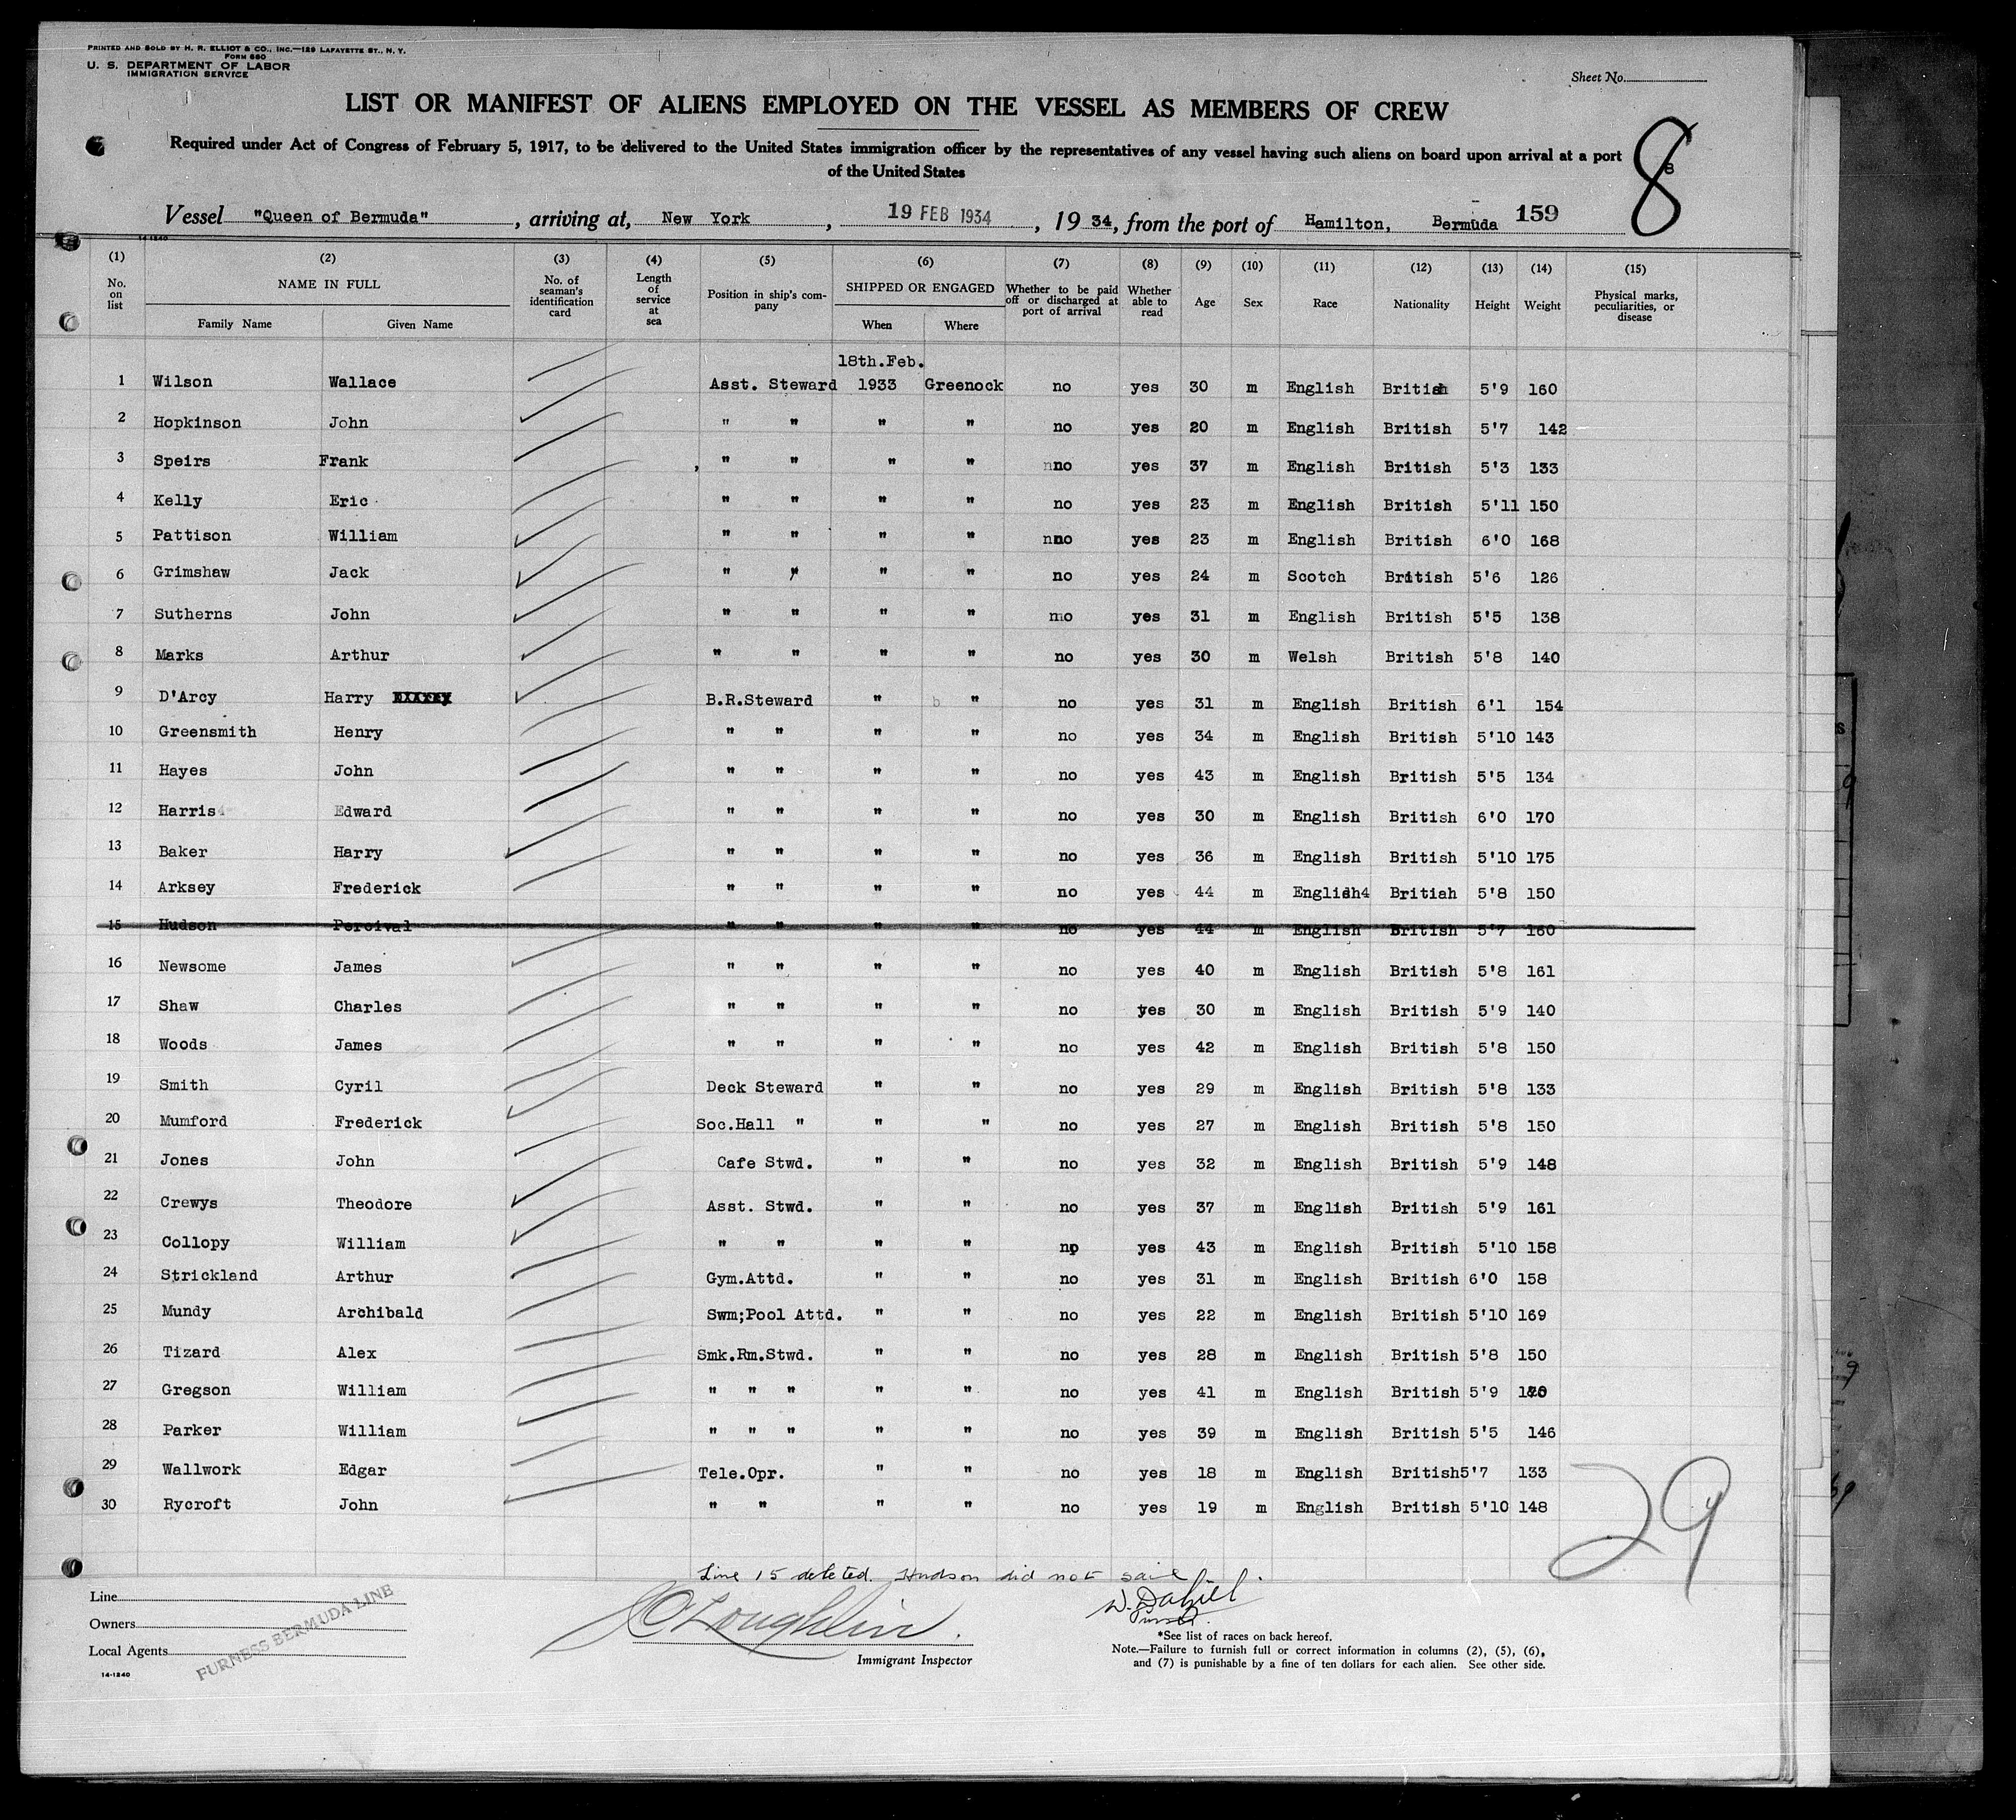 PRINTED AND SOLD BY H. R. ELLIOT & CO., INC.—129 LAFAYETTE ST., N. Y.
FORM 680
U. S. DEPARTMENT OF LABOR
IMMIGRATION SERVICE
Sheet No.
LIST OR MANIFEST OF ALIENS EMPLOYED ON THE VESSEL AS MEMBERS OF CREW
8
Required under Act of Congress of February 5, 1917, to be delivered to the United States immigration officer by the representatives of any vessel having such aliens on board upon arrival at a port
of the United States
Vessel "Queen of Bermuda", arriving at, New York, 19 FEB 1934, 1934, from the port of Hamilton, Bermuda 159
14-1240
(1) (2) (3) (4) (5) (6) (7) (8) (9) (10) (11) (12) (13) (14) (15)
No. on list NAME IN FULL No. of seaman's identification card Length of service at sea Position in ship's company SHIPPED OR ENGAGED Whether to be paid off or discharged at port of arrival Whether able to read Age Sex Race Nationality Height Weight Physical marks, peculiarities, or disease
Family Name Given Name When Where
18th.Feb.
1 Wilson Wallace Asst. Steward 1933 Greenock no yes 30 m English British 5'9 160
2 Hopkinson John " " " " no yes 20 m English British 5'7 142
3 Speirs Frank , " " " " nno yes 37 m English British 5'3 133
4 Kelly Eric " " " " no yes 23 m English British 5'11 150
5 Pattison William " " " " nno yes 23 m English British 6'0 168
6 Grimshaw Jack " " " " no yes 24 m Scotch British 5'6 126
7 Sutherns John " " " " no yes 31 m English British 5'5 138
8 Marks Arthur " " " " no yes 30 m Welsh British 5'8 140
9 D'Arcy Harry B.R.Steward " " no yes 31 m English British 6'1 154
10 Greensmith Henry " " " " no yes 34 m English British 5'10 143
11 Hayes John " " " " no yes 43 m English British 5'5 134
12 Harris Edward " " " " no yes 30 m English British 6'0 170
13 Baker Harry " " " " no yes 36 m English British 5'10 175
14 Arksey Frederick " " " " no yes 44 m English4 Britiah 5'8 150
15 Hudson Percival " " " " no yes 44 m English British 5'7 160
16 Newsome James " " " " no yes 40 m English British 5'8 161
17 Shaw Charles " " " " no yes 30 m English British 5'9 140
18 Woods James " " " " no yes 42 m English British 5'8 150
19 Smith Cyril Deck Steward " " no yes 29 m English British 5'8 133
20 Mumford Frederick Soc.Hall " " " no yes 27 m English British 5'8 150
21 Jones John Cafe Stwd. " " no yes 32 m English British 5'9 148
22 Crewys Theodore Asst. Stwd. " " no yes 37 m English British 5'9 161
23 Collopy William " " " " no yes 43 m English British 5'10 158
24 Strickland Arthur Gym.Attd. " " no yes 31 m English British 6'0 158
25 Mundy Archibald Swm;Pool Attd. " " no yes 22 m English British 5'10 169
26 Tizard Alex Smk.Rm.Stwd. " " no yes 28 m English British 5'8 150
27 Gregson William " " " " " no yes 41 m English British 5'9
28 Parker William " " " " " no yes 39 m English British 5'5 146
29 Wallwork Edgar Tele.Opr. " " no yes 18 m English British 5'7 133
30 Rycroft John " " " " no yes 19 m English British 5'10 148
29
Line 15 deleted. Hudson did not sail.
Line
Owners
Local Agents
FURNESS BERMUDA LINE
14-1240
J C Loughlin.
Immigrant Inspector
W. Dalziel
Purser.
*See list of races on back hereof.
Note.—Failure to furnish full or correct information in columns (2), (5), (6),
and (7) is punishable by a fine of ten dollars for each alien. See other side.